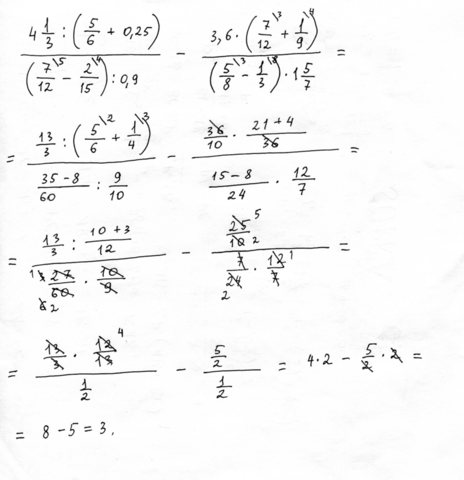 4 1/3 : (5/6 + 0,25) / (7/12 \5 − 2/15 \4) : 0,9 − 3,6 · (7/12 \3 + 1/9 \4) / (5/8 \3 − 1/3 \8) · 1 5/7 =
= 13/3 : (5/6 \2 + 1/4 \3) / 35−8/60 : 9/10 − 36/10 · 21+4/36 / 15−8/24 · 12/7 =
= 13/3 : 10+3/12 / 1 3 27/60 6 2 · 10/9 − 25 5/10 2 / 7/24 2 · 12 1/7 =
= 13/3 · 12 4/13 / 1/2 − 5/2 / 1/2 = 4·2 − 5/2 · 2 =
= 8 − 5 = 3.